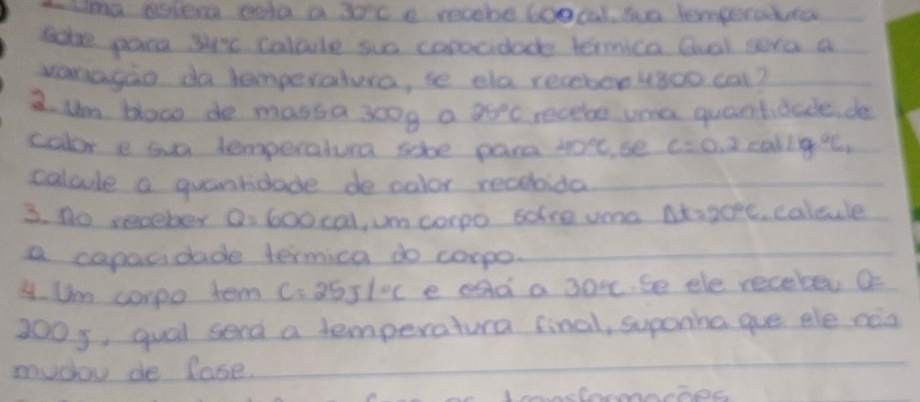 Uma esfera esta a 30°C e recebe 600 cal. sua temperatura
sobe para 34°C. Calcule sua capacidade térmica. Qual sera a
variação da temperatura, se ela receber 4800 cal?
2. Um bloco de massa 300g a 25°C recebe uma quantidade de
calor e sua temperatura sobe para 40°C, se c=0,2 cal/g°C,
calcule a quantidade de calor recebida.
3. Ao receber Q=600cal, um corpo sofre uma Δt=20°C. calcule
a capacidade térmica do corpo.
4. Um corpo tem C=25J/°C e está a 30°C. Se ele recebeu Q=
200J, qual será a temperatura final, suponha que ele não
mudou de fase.
transformações